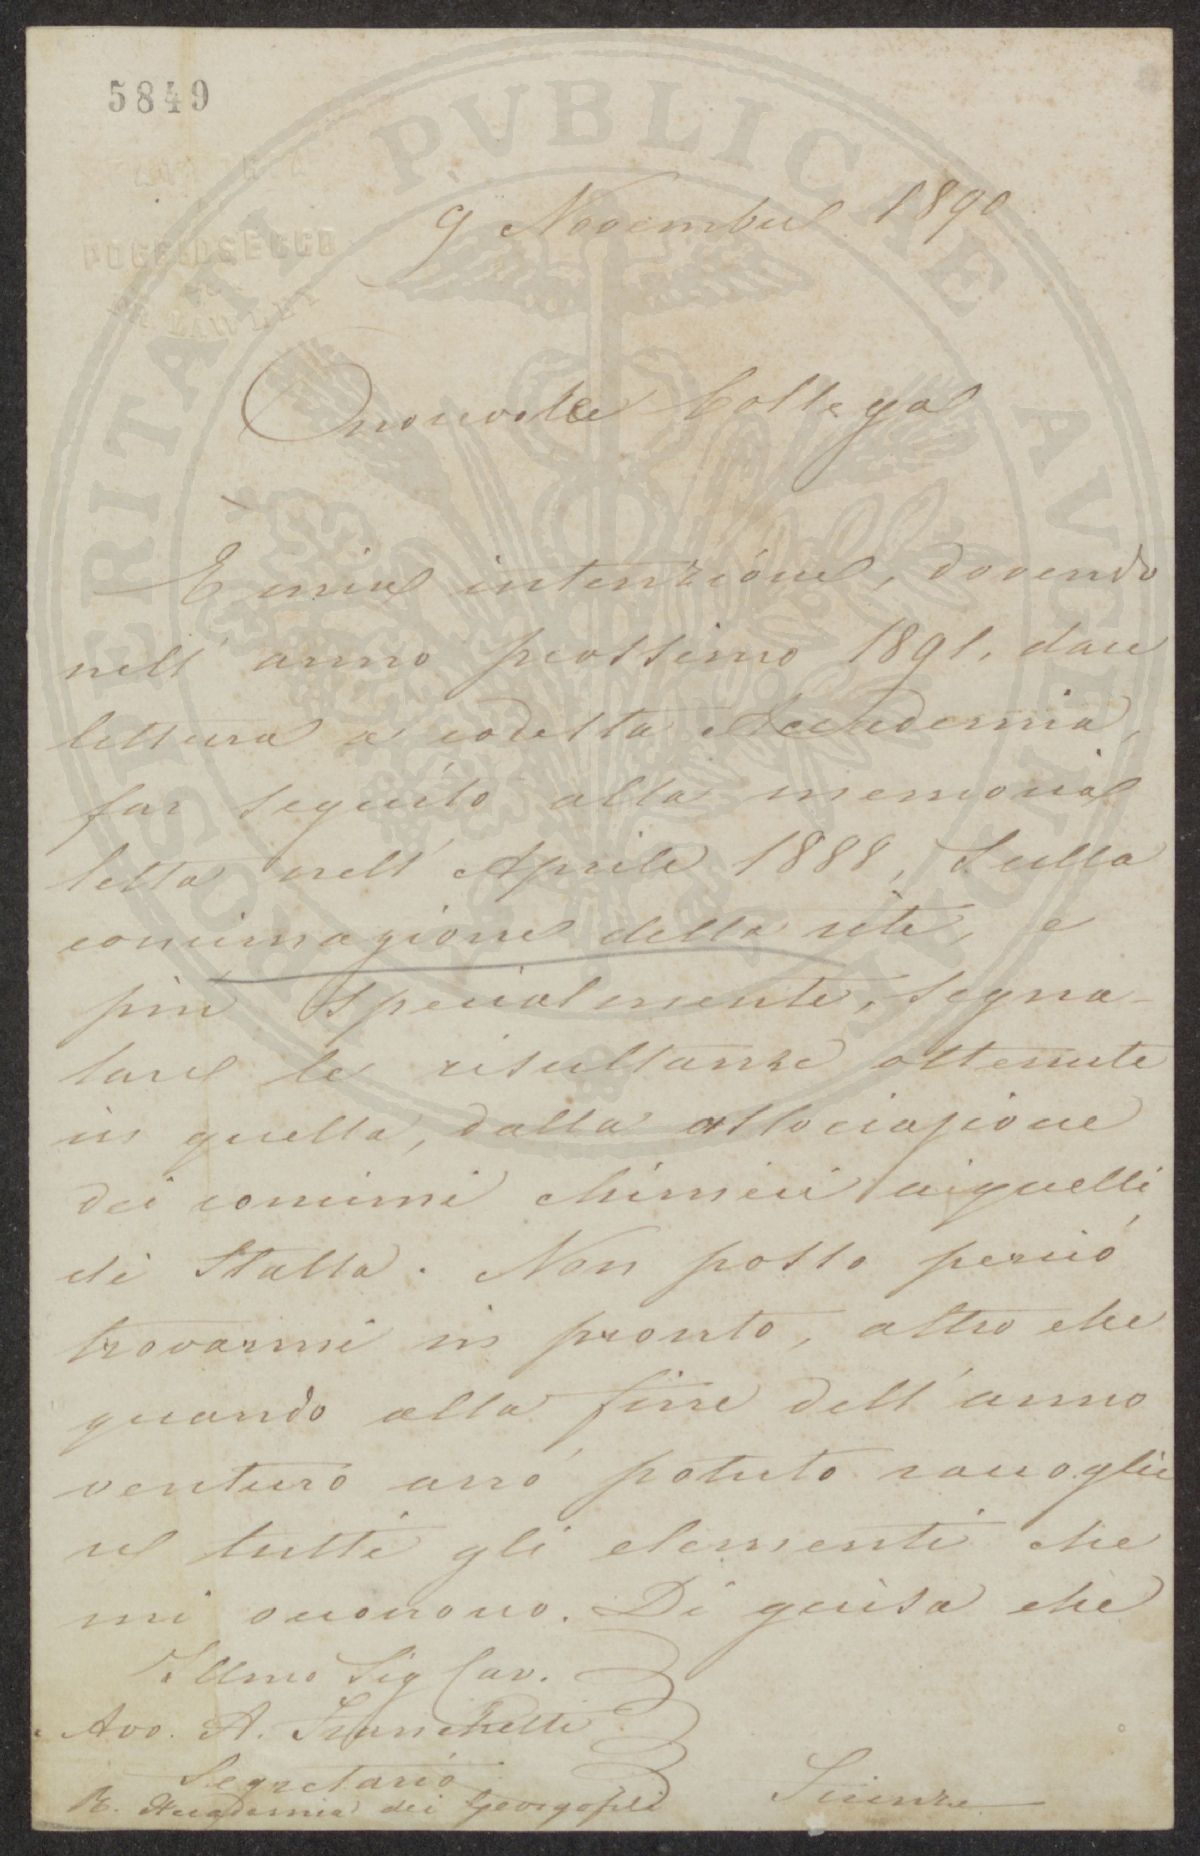 5849
FATTORIA
DI
POGGIOSECCO
LAWLEY
9 Novembre 1890
Onorevole Collega
È mia intenzione, dovendo
nell' anno prossimo 1891, dare
lettura a codesta Accademia,
far seguito alla memoria
letta nell' Aprile 1888, Sulla
concimazione della vite, e
più specialmente, segna-
lare le risultanze ottenute
in quella, dalla associazione
dei concimi chimici ai quelli
di Stalla. Non posso perciò
trovarmi in pronto, altro che
quando alla fine dell' anno
venturo avrò potuto raccoglie
re tutti gli elementi che
mi occorrono. Di guisa che
Illmo Sig Cav.
Avv. A. Franchetti
Segretario
R. Accademia dei Georgofili
Firenze
PROSPERITATI PVBLICAE AVGENDAE